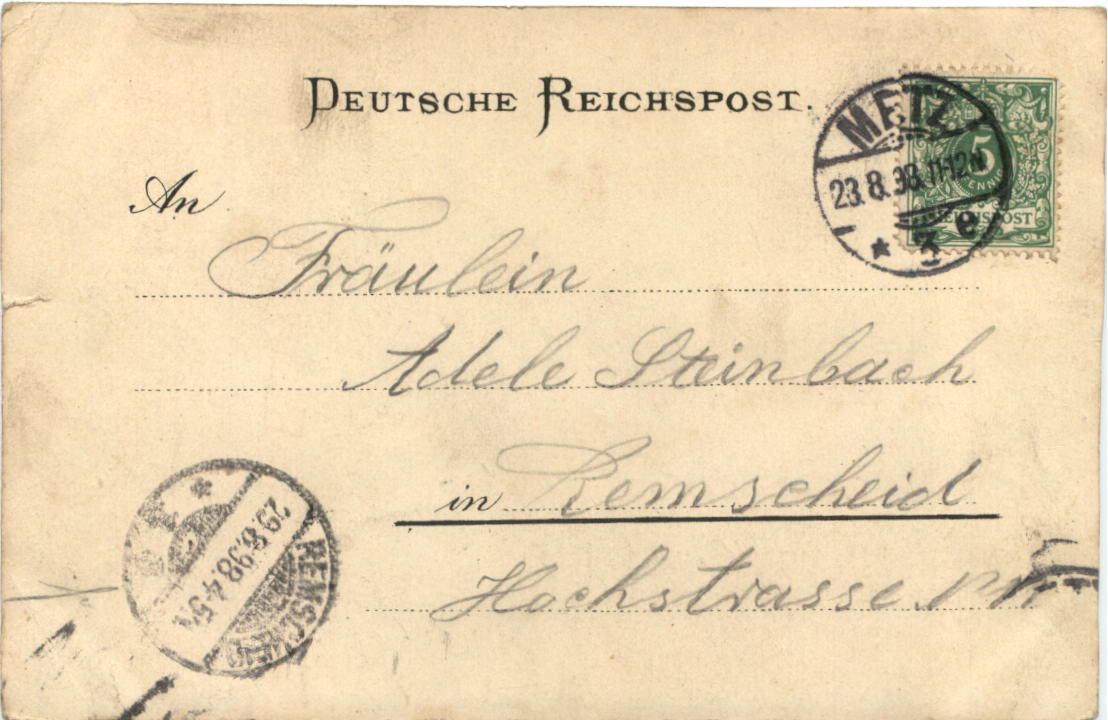 DEUTSCHE REICHSPOST.
METZ
23.8.98.11-12N
* 3 e
5
PFENNIG
REICHSPOST
An
Fräulein
Adele Steinbach
in Remscheid
Hochstrasse
REMSCHEID
29.8.98.4-5N
*